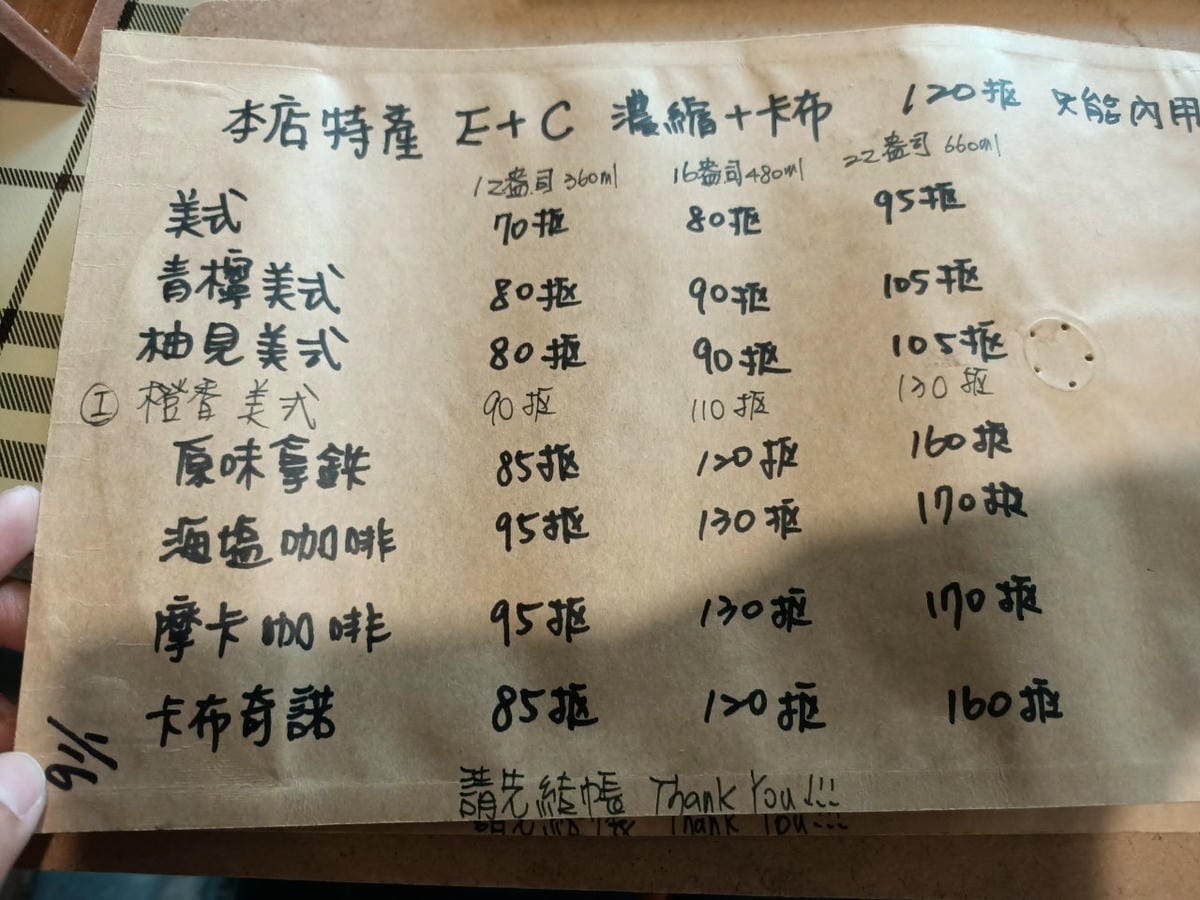 本店特產 E+C 濃縮+卡布 120抠 只能內用
12盎司 360ml 16盎司 480ml 22盎司 660ml
美式 70抠 80抠 95抠
青檸美式 80抠 90抠 105抠
柚見美式 80抠 90抠 105抠
Ⓘ 橙香美式 90抠 110抠 130抠
原味拿鉄 85抠 120抠 160抠
海塩咖啡 95抠 130抠 170抠
摩卡咖啡 95抠 130抠 170抠
卡布奇諾 85抠 120抠 160抠
請先結帳 Thank You!!!
1/16